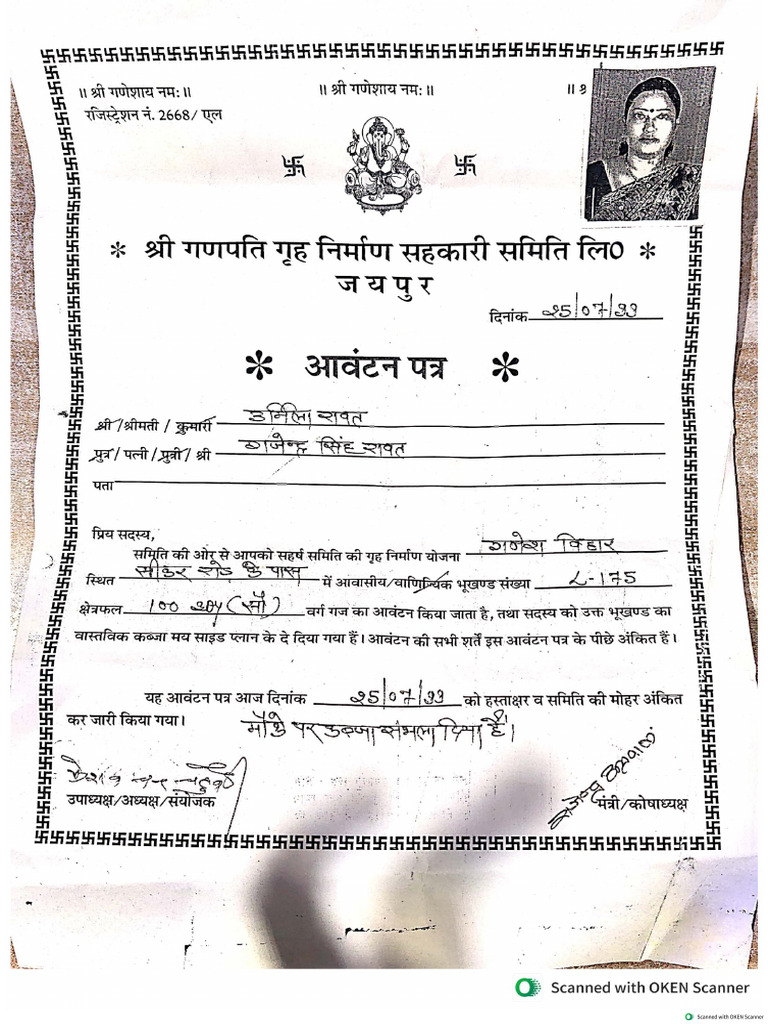 ॥ श्री गणेशाय नमः॥ ॥ श्री गणेशाय नमः॥ ॥ श्र
रजिस्ट्रेशन नं. 2668/ एल
* श्री गणपति गृह निर्माण सहकारी समिति लि0 *
ज य पु र
दिनांक 25/07/99
* आवंटन पत्र *
श्री/श्रीमती/ कुमारी उर्मिला रावत
पुत्र/ पत्नी/पुत्री/ श्री राजेन्द्र सिंह रावत
पता
प्रिय सदस्य,
समिति की ओर से आपको सहर्ष समिति की गृह निर्माण योजना गणेश विहार
स्थित सीकर रोड के पास में आवासीय/वाणिज्यिक भूखण्ड संख्या L-175
क्षेत्रफल 100 (सौ) वर्ग गज का आवंटन किया जाता है, तथा सदस्य को उक्त भूखण्ड का
वास्तविक कब्जा मय साइड प्लान के दे दिया गया हैं। आवंटन की सभी शर्तें इस आवंटन पत्र के पीछे अंकित हैं।
यह आवंटन पत्र आज दिनांक 25/07/99 को हस्ताक्षर व समिति की मोहर अंकित
कर जारी किया गया। मौके पर कब्जा संभला दिया है।
उपाध्यक्ष/अध्यक्ष/संयोजक मंत्री/कोषाध्यक्ष
Scanned with OKEN Scanner
Scanned with OKEN Scanner